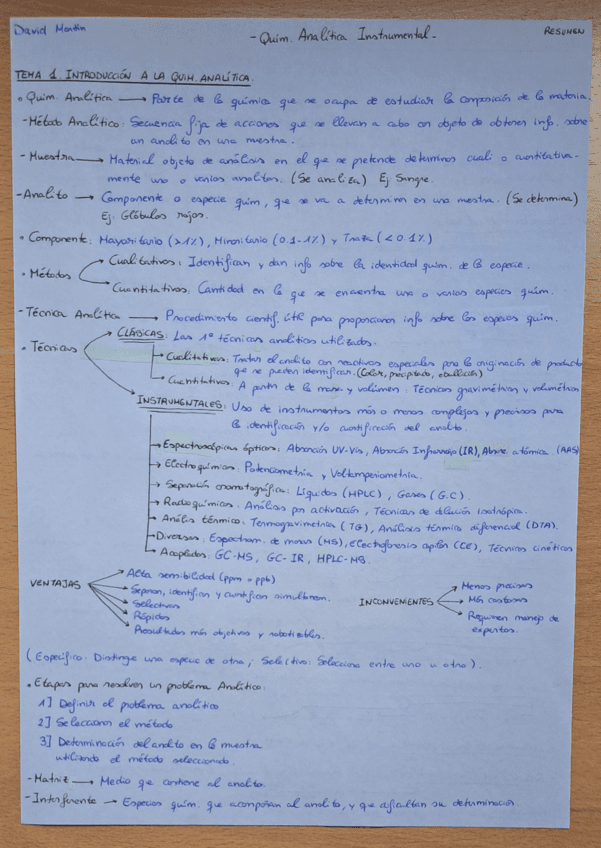 David Martín
- Quím. Analítica Instrumental -
RESUMEN
TEMA 1. INTRODUCCIÓN A LA QUIM. ANALÍTICA.
• Quím. Analítica → Parte de la química que se ocupa de estudiar la composición de la materia.
- Método Analítico: Secuencia fija de acciones que se llevan a cabo con objeto de obtener info. sobre
un analito en una muestra.
- Muestra → Material objeto de análisis en el que se pretende determinar cuali o cuantitativa-
mente uno o varios analitos. (Se analiza) Ej: Sangre.
- Analito → Componente o especie quím, que se va a determinar en una muestra. (Se determina)
Ej: Glóbulos rojos.
• Componente: Mayoritario (>1%), Minoritario (0.1-1%) y Traza (<0.1%)
• Métodos
Cualitativos: Identifican y dan info sobre la identidad quím. de la especie.
Cuantitativos: Cantidad en la que se encuentra una o varias especies quím.
- Técnica Analítica → Procedimiento científ. útil para proporcionar info sobre las especies quím.
• Técnicas
CLÁSICAS: Las 1º técnicas analíticas utilizadas.
→ Cualitativas: Tratan el analito con reactivos especiales para la originación de productos
que se pueden identificar. (Color, precipitado, ebullición)
→ Cuantitativas: A partir de la masa y volúmen: Técnicas gravimétricas y volumétricas
INSTRUMENTALES: Uso de instrumentos más o menos complejos y precisos para
la identificación y/o cuantificación del analito.
→ Espectroscópicas ópticas: Absorción UV-Vis, Absorción Infrarrojo (IR), Absore atómica (AAS)
→ Electroquímicas: Potenciometría y Voltamperiometría.
→ Separación cromatográfica: Líquidos (HPLC), Gases (G.C).
→ Radioquímicos: Análisis por activación, Técnicas de dilución isotrópica.
→ Anális térmico: Termogravimetría (TG), Análisis térmico diferencial (DTA).
→ Diversos: Espectrom. de masas (MS), Electroforesis capilar (CE), Técnicas cinéticas
→ Acoplados: GC-MS, GC-IR, HPLC-MS.
VENTAJAS
→ Alta sensibilidad (ppm o ppb)
→ Separan, identifican y cuantifican simultáneam.
→ Selectivas
→ Rápidas
→ Resultados más objetivos y robotizables.
INCONVENIENTES
→ Menos precisas
→ Más costosas
→ Requieren manejo de
expertos.
(Específico: Distingue una especie de otra; Selectivo: Selecciona entre uno u otro).
• Etapas para resolver un problema Analítico:
1] Definir el problema analítico
2] Seleccionar el método
3] Determinación del analito en la muestra
utilizando el método seleccionado.
- Matriz → Medio que contiene al analito.
- Interferente → Especies quím. que acompañan al analito, y que dificultan su determinación.